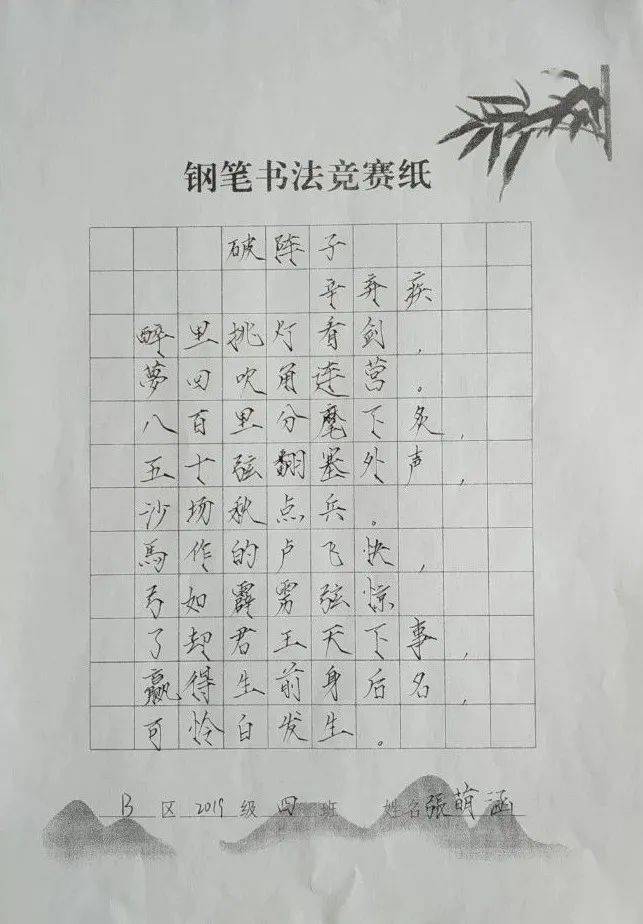 钢笔书法竞赛纸
破阵子
辛弃疾
醉里挑灯看剑，
夢回吹角连营。
八百里分麾下炙，
五十弦翻塞外声，
沙场秋点兵。
馬作的卢飞快，
弓如霹雳弦惊
了却君王天下事，
赢得生前身后名，
可怜白发生。
B 区 2019 级 四 班 姓名 張萌涵